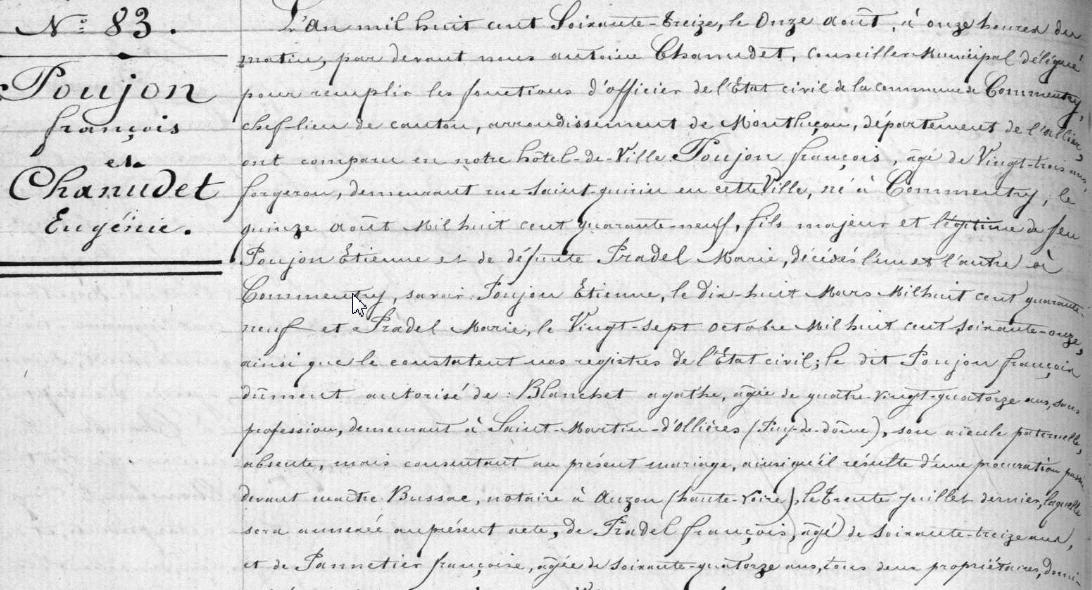 N° 83.
Poujon
françois
et
Chanudet
Eugénie.
L'An mil huit cent Soixante-treize, le Onze août, à onze heures du
matin, par devant nous antoine Chanudet, Conseiller Municipal délégué
pour remplir les fonctions d'officier de l'État civil de la commune de Commentry,
chef-lieu de canton, arrondissement de Montluçon, département de l'allier,
ont comparu en notre hôtel-de-Ville Poujon françois, âgé de Vingt-trois ans
forgeron, demeurant rue Saint-quirin en cette Ville, né à Commentry, le
quinze août Mil huit cent quarante-neuf, fils majeur et légitime de feu
Poujon Étienne et de défunte Pradel Marie, décédés l'un et l'autre à
Commentry, savoir Poujon Étienne, le Dix-huit Mars Mil huit cent quarante-
neuf et Pradel Marie, le Vingt-sept octobre Mil huit cent soixante-onze,
ainsi que le constatent nos registres de l'État civil; le dit Poujon françois
dûment autorisé de Blanchet agathe, âgée de quatre-vingt-quatorze ans, sans
profession, demeurant à Saint-Martin-d'Ollières (Puy-de-dôme), son aïeule paternelle,
absente, mais consentant au présent mariage, ainsi qu'il résulte d'une procuration passée
devant maître Bussac, notaire à Auzon (haute-Loire), le trente juillet dernier, laquelle
sera annexée au présent acte, de Pradel françois, âgé de soixante-treize ans,
et de Pannetier françoise, âgée de soixante-quatorze ans, tous deux propriétaires, domi-